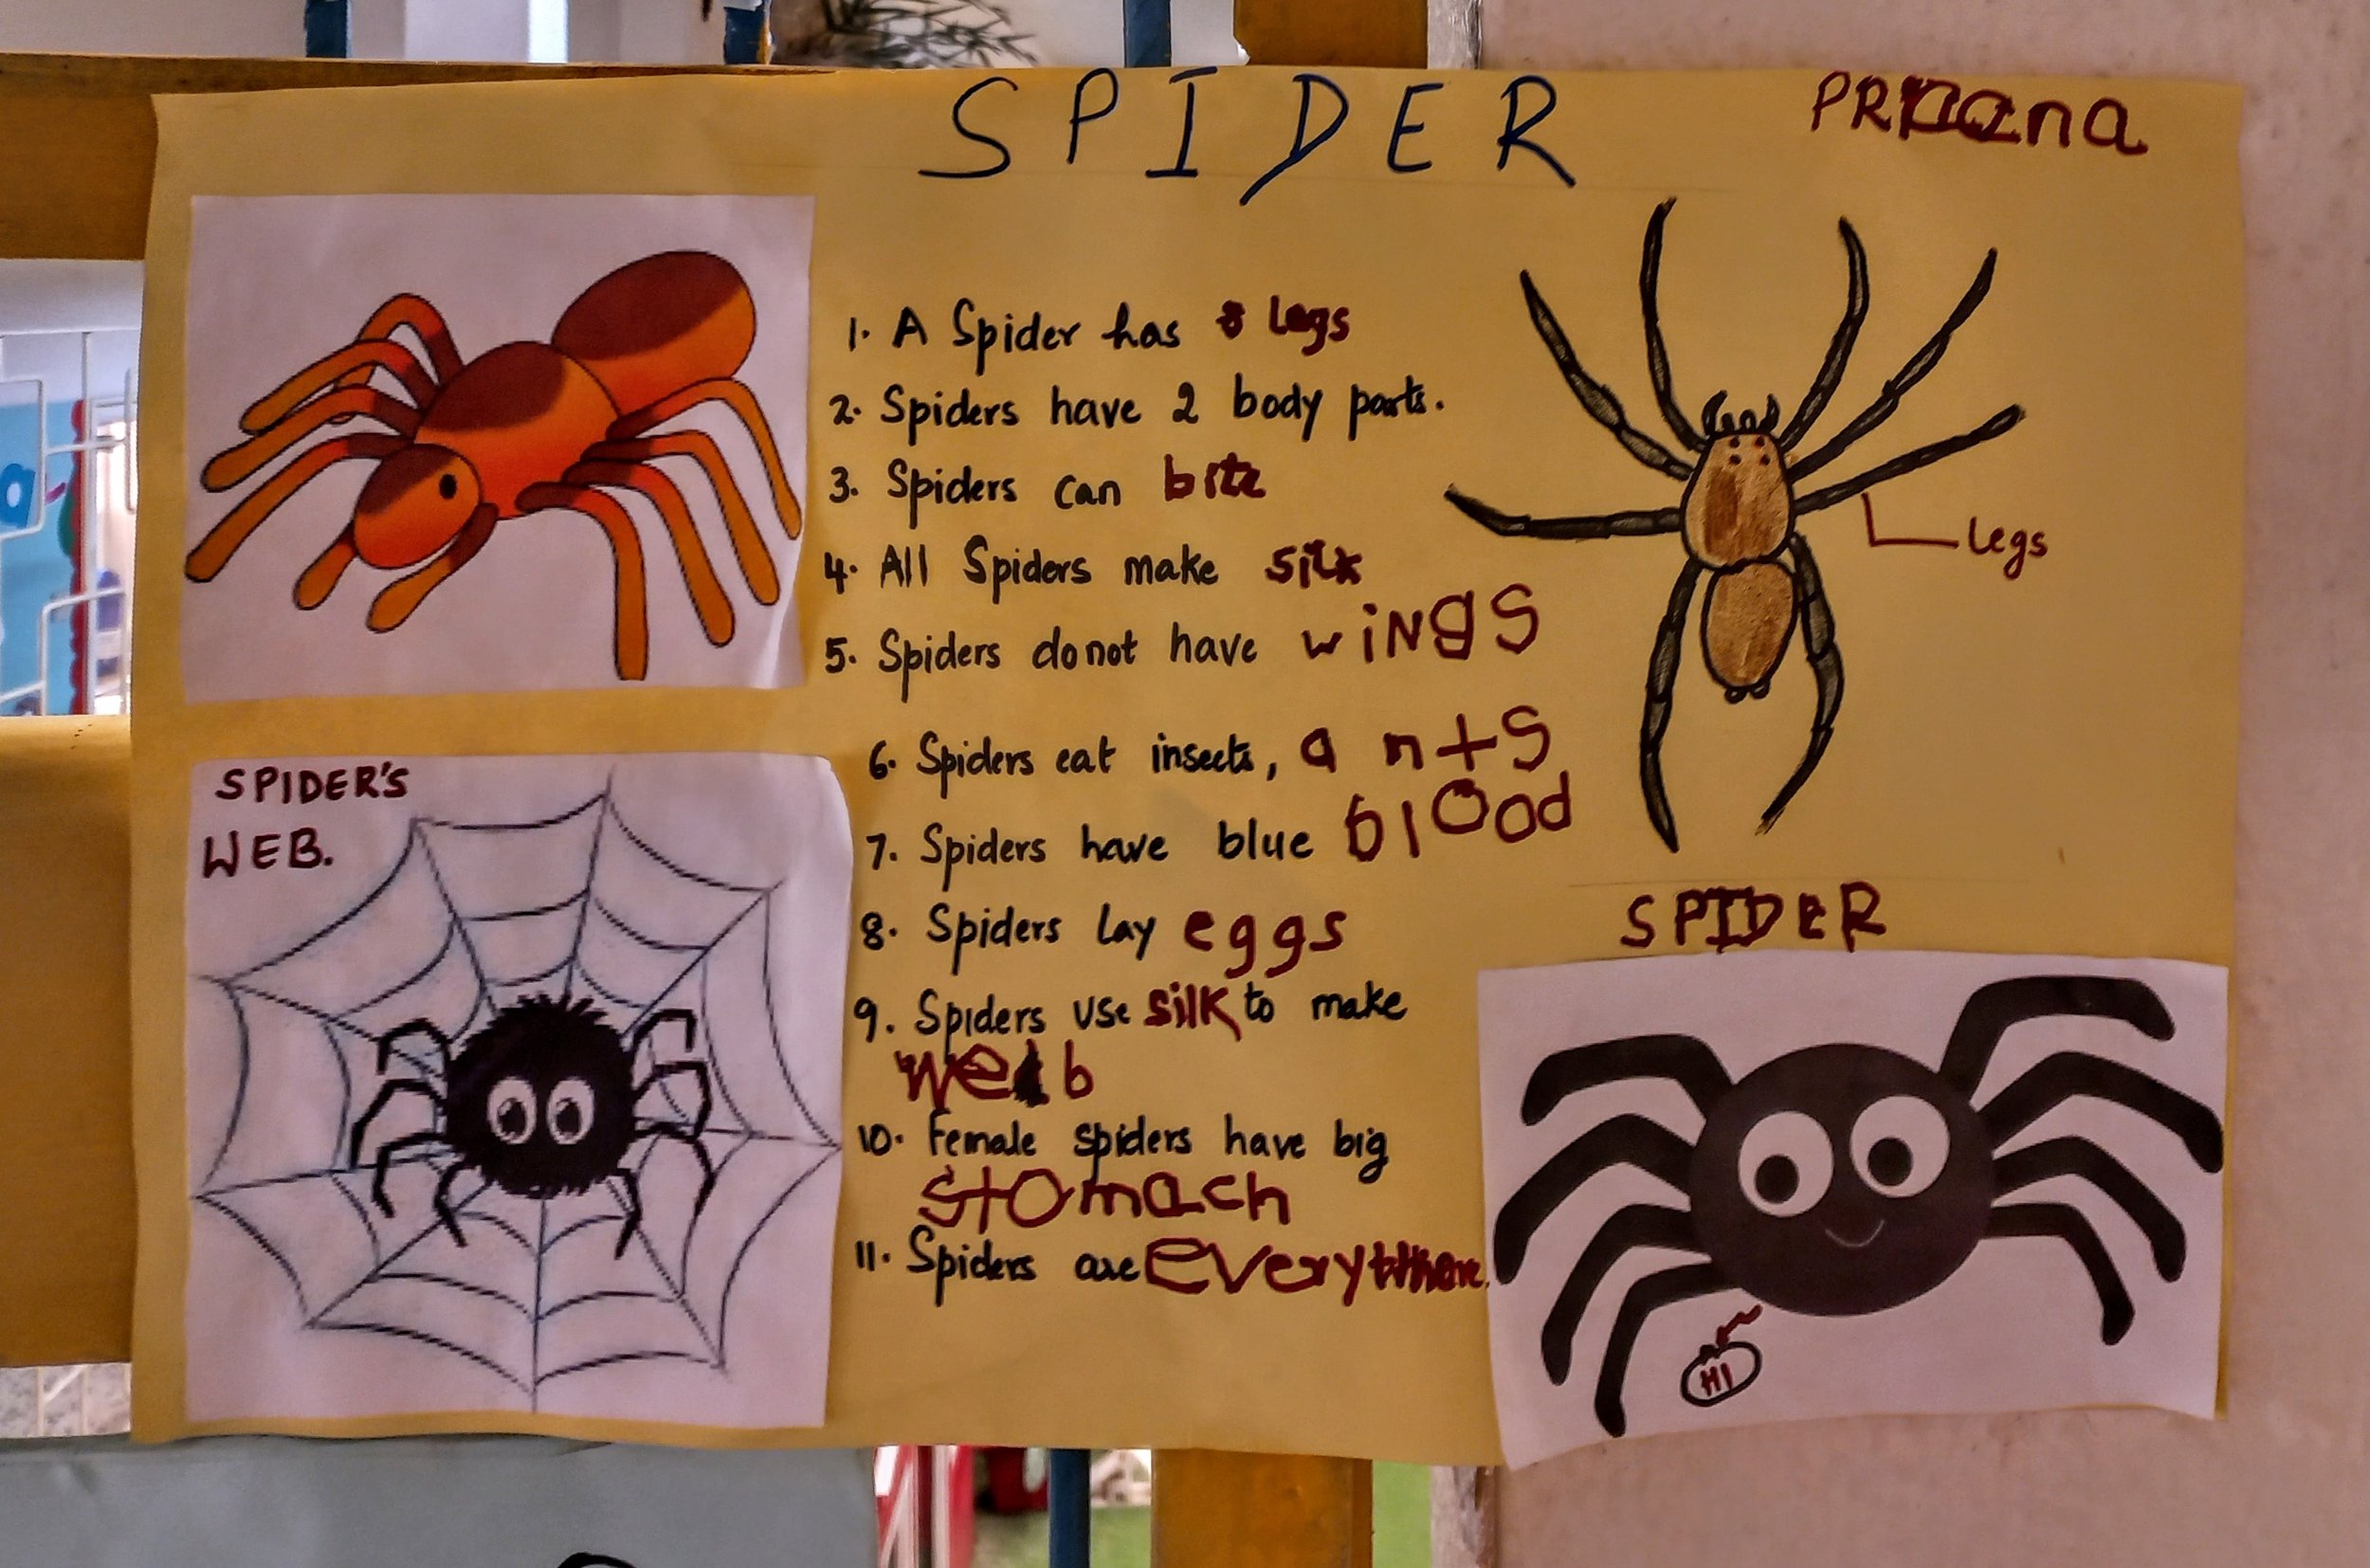 SPIDER
1. A Spider has 8 legs
2. Spiders have 2 body parts.
3. Spiders can bite
4. All Spiders make silk
5. Spiders do not have wiNgS
6. Spiders eat insects, antS
7. Spiders have blue blOod
8. Spiders lay eggs
9. Spiders use silk to make
web
10. Female spiders have big
stomach
11. Spiders are everywhere.
legs
SPIDER'S
WEB.
SPIDER
HI